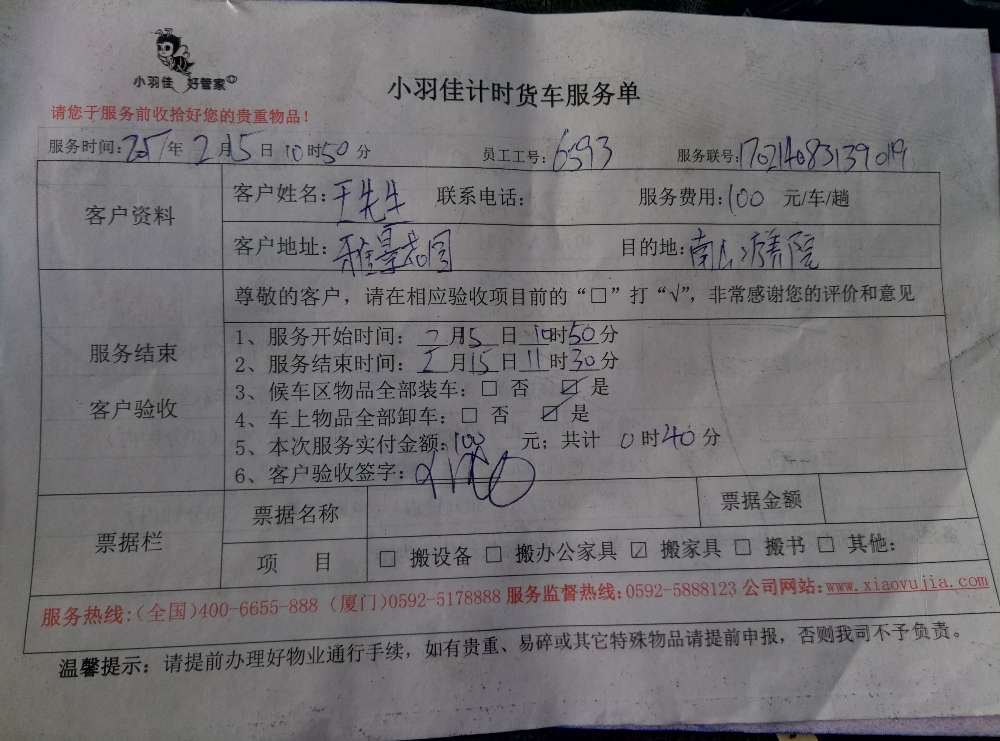 小羽佳 好管家
小羽佳计时货车服务单
请您于服务前收拾好您的贵重物品！
服务时间: 年 2 月 15 日 10 时 50 分 员工工号: 6593 服务联号: 170214083139019
客户资料
客户姓名: 王先生 联系电话: 服务费用: 100 元/车/趟
客户地址: 雅景花园 目的地: 南山疗养院
尊敬的客户，请在相应验收项目前的“□”打“√”，非常感谢您的评价和意见
服务结束
客户验收
1、服务开始时间: 2 月 5 日 10 时 50 分
2、服务结束时间: 2 月 15 日 11 时 30 分
3、候车区物品全部装车: □ 否 ☑ 是
4、车上物品全部卸车: □ 否 ☑ 是
5、本次服务实付金额: 100 元; 共计 0 时 40 分
6、客户验收签字:
票据栏
票据名称 票据金额
项 目 □ 搬设备 □ 搬办公家具 ☑ 搬家具 □ 搬书 □ 其他:
服务热线:(全国)400-6655-888 (厦门)0592-5178888 服务监督热线:0592-5888123 公司网站:www.xiaoyujia.com
温馨提示: 请提前办理好物业通行手续，如有贵重、易碎或其它特殊物品请提前申报，否则我司不予负责。